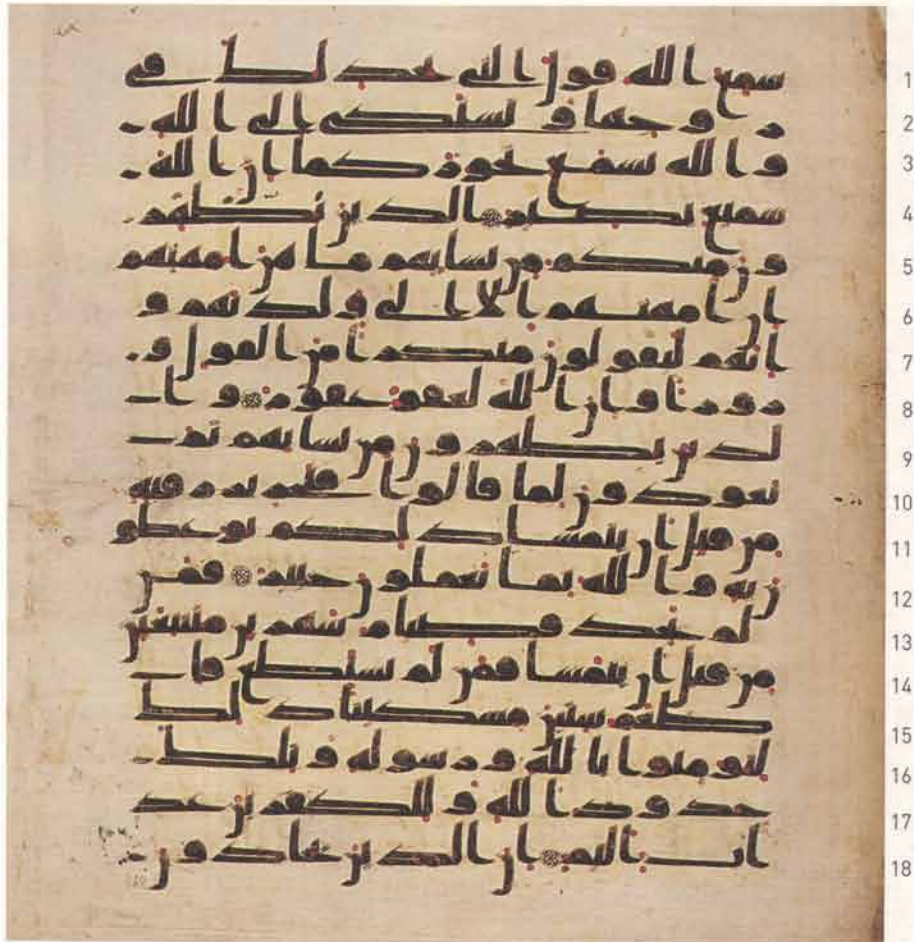 سمع الله قول التي تجدلك في 1
زوجها وتشتكي الى الله 2
والله يسمع تحوركما ان الله 3
سميع بصير الذين يظهر 4
ون منكم من نسايهم ما هن امهتهم 5
ان امهتهم الا الى ولدنهم و 6
انهم ليقولون منكرا من القول و 7
زورا وان الله لعفو غفور وا 8
لذين يظهرون من نسايهم ثم 9
يعودون لما قالوا فتحرير رقبة 10
من قبل ان يتماسا ذلكم توعظو 11
ن به والله بما تعملون خبير فمن 12
لم يجد فصيام شهرين متتابعين 13
من قبل ان يتماسا فمن لم يستطع فا 14
طعام ستين مسكينا ذلك 15
لتومنوا بالله ورسوله وتلك 16
حدود الله وللكفرين عذ 17
اب اليم ان الذين يحادون 18